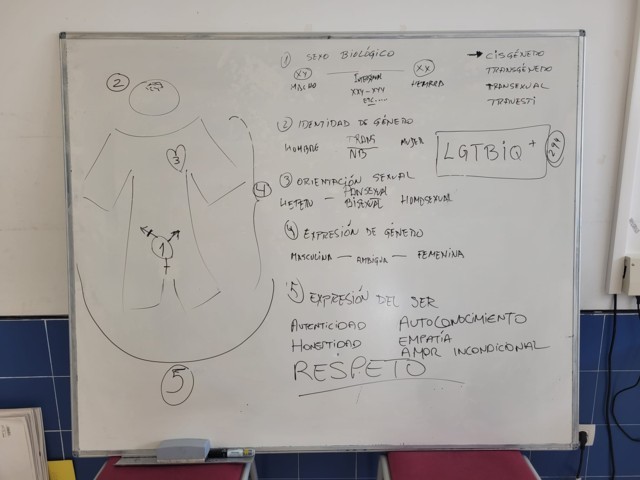 2
3
4
1
5
1 SEXO BIOLÓGICO
XY
MACHO
INTERSEXUAL
XXY - XYY
ETC....
XX
HEMBRA
2 IDENTIDAD DE GÉNERO
HOMBRE
TRANS
NB
MUJER
3 ORIENTACIÓN SEXUAL
HETERO - PANSEXUAL
BISEXUAL
HOMOSEXUAL
4 EXPRESIÓN DE GÉNERO
MASCULINA - AMBIGUA - FEMENINA
5 EXPRESIÓN DEL SER
AUTENTICIDAD AUTOCONOCIMIENTO
HONESTIDAD EMPATÍA
AMOR INCONDICIONAL
RESPETO
CISGÉNERO
TRANSGÉNERO
TRANSEXUAL
TRAVESTI
LGTBIQ+